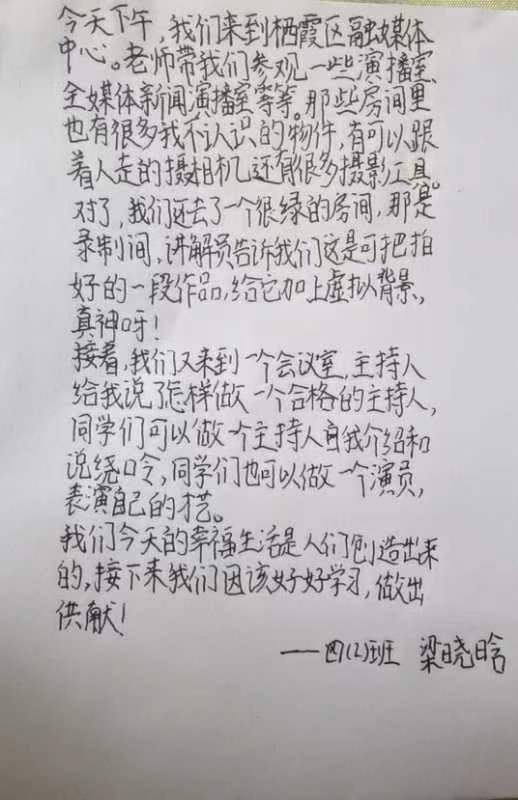 今天下午，我们来到栖霞区融媒体
中心。老师带我们参观一些演播室、
全媒体新闻演播室等等。那些房间里
也有很多我不认识的物件，有可以跟
着人走的摄相机，还有很多摄影工具。
对了，我们还去了一个很绿的房间，那是
录制间，讲解员告诉我们这是可把拍
好的一段作品，给它加上虚拟背景，
真神呀！
接着，我们又来到一个会议室，主持人
给我说了怎样做一个合格的主持人，
同学们可以做一个主持人自我介绍和
说绕口令，同学们也可以做一个演员，
表演自己的才艺。
我们今天的幸福生活是人们创造出来
的，接下来我们因该好好学习，做出
供献！
——四(2)班 梁晓晗